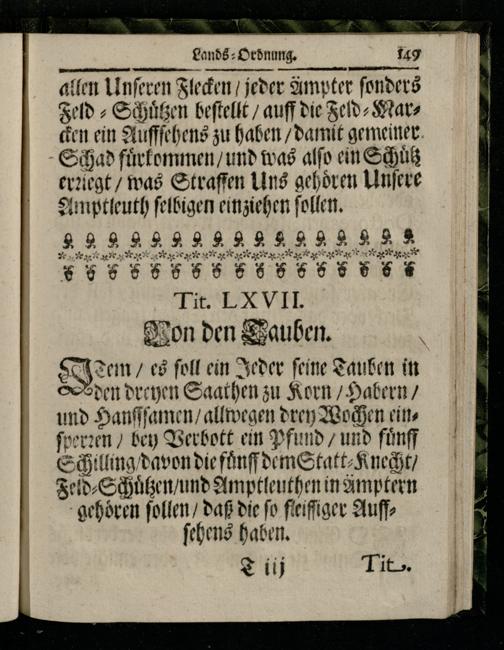 Lands-Ordnung. 149
allen Unseren Flecken / jeder Ämpter sonders
Feld-Schützen bestellt / auff die Feld-Mar-
cken ein Auffsehens zu haben / damit gemeiner
Schad fürkommen / und was also ein Schütz
erriegt / was Straffen Uns gehören Unsere
Amptleuth selbigen einziehen sollen.
Tit. LXVII.
Von den Tauben.
ITem / es soll ein Jeder seine Tauben in
den dreyen Saathen zu Korn / Habern /
und Hanffsamen / allwegen drey Wochen ein-
sperren / bey Verbott ein Pfund / und fünff
Schilling / davon die fünff dem Statt-Knecht /
Feld-Schützen / und Amptleuthen in Ämptern
gehören sollen / daß die so fleissiger Auff-
sehens haben.
T iij Tit.